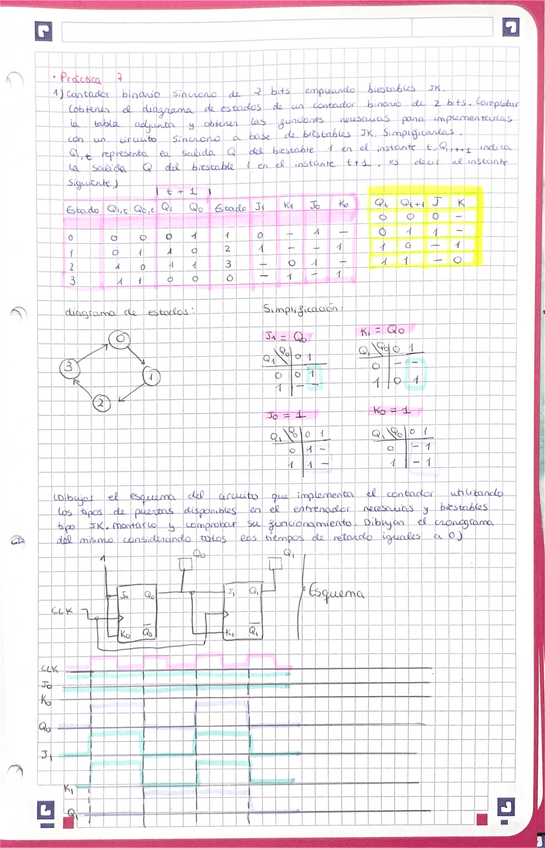 · Práctica 7
1) Contador binario síncrono de 2 bits empleando biestables JK.
(obtener el diagrama de estados de un contador binario de 2 bits. Completar
la tabla adjunta y obtener las funciones necesarias para implementarlas
con un circuito síncrono a base de biestables JK. Simplificarlas.
Q1,t representa la salida Q del biestable 1 en el instante t, Q1,t+1 indica
la salida Q del biestable 1 en el instante t+1, es decir el instante
siguiente)
| t+1 |
Estado Q1,t Q0,t Q1 Q0 Estado J1 K1 J0 K0
0 0 0 0 1 1 0 - 1 -
1 0 1 1 0 2 1 - - 1
2 1 0 1 1 3 - 0 1 -
3 1 1 0 0 0 - 1 - 1
Qt Qt+1 J K
0 0 0 -
0 1 1 -
1 0 - 1
1 1 - 0
diagrama de estados:
0
3
1
2
Simplificación:
J1 = Q0
Q1\Q0 0 1
0 0 1
1 - -
K1 = Q0
Q1\Q0 0 1
0 - -
1 0 1
J0 = 1
Q1\Q0 0 1
0 1 -
1 1 -
K0 = 1
Q1\Q0 0 1
0 - 1
1 - 1
(Dibujar el esquema del circuito que implementa el contador utilizando
los tipos de puertas disponibles en el entrenador necesarias y biestables
tipo JK. montarlo y comprobar su funcionamiento. Dibujen el cronograma
del mismo considerando todos los tiempos de retardo iguales a 0)
1
Q0
Q1
J0 Q0
J1 Q1
Esquema
CLK
K0 Q0
K1 Q1
CLK
J0
K0
Q0
J1
K1
Q1